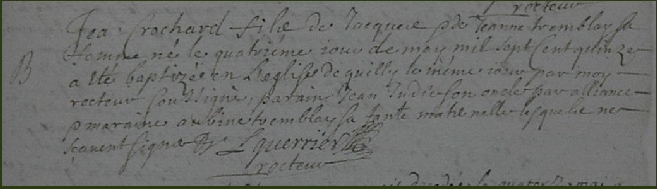 recteur
Jea crochard fils de Jacques & de Jeanne tremblay sa
femme né le quatriéme iour de may mil sept cent quinze
B a ete baptizé en L'eglise de quilly le méme iour par moy
recteur soussigne, parain Jean Judic son oncle par alliance
& maraine aubine tremblay sa tante maternelle lesquels ne
scavent signer Lguerrier
recteur